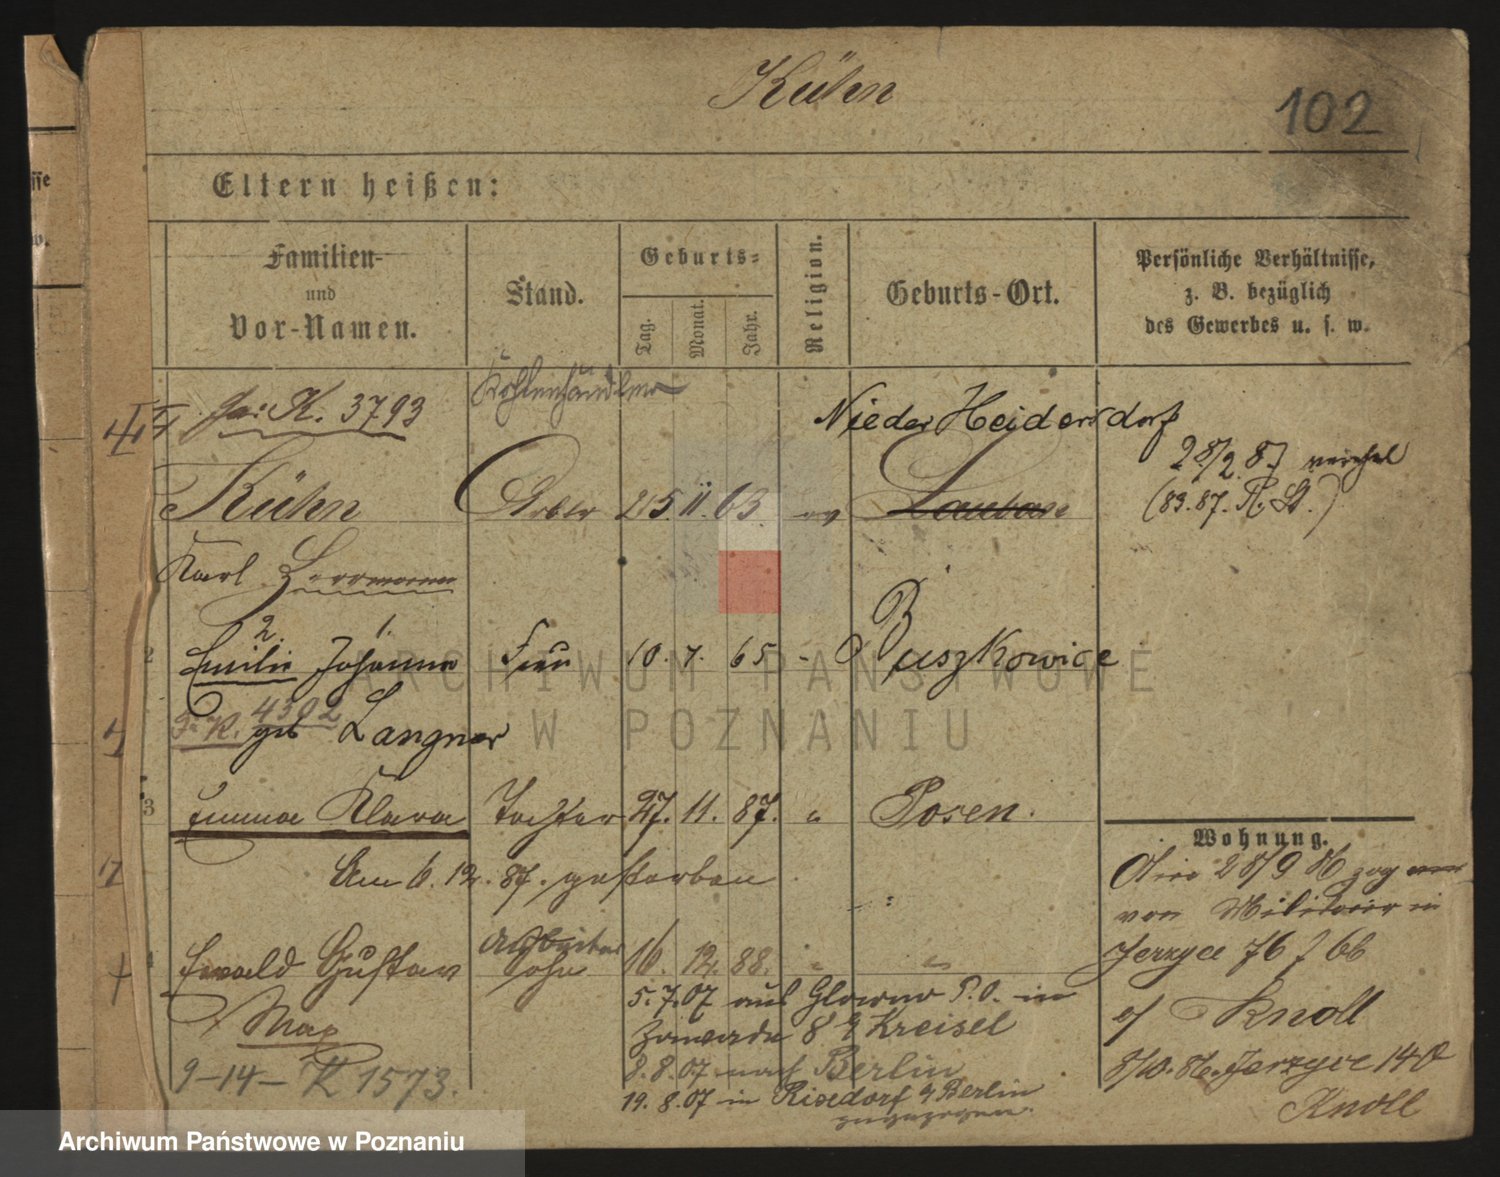 Kühn
102
Eltern heißen:
Familien-
und
Vor-Namen.
Stand.
Geburts-
Tag.
Monat.
Jahr.
Religion.
Geburts-Ort.
Persönliche Verhältnisse,
z. B. bezüglich
des Gewerbes u. s. w.
K. 3793
Kohlenhändler
Nieder Heidersdorf
Kühn
Arbtr
25. 11. 63.
ev
Lauban
28/2 87
(83. 87. R. St.)
Karl Herrmann
2. 1.
2
Emilie Johanna
Frau
10. 7. 65
Buszkowice
4302
geb Langner
3
Emma Klara
Tochter
27. 11. 87.
Posen.
Am 6. 12. 87. gestorben
Wohnung.
28/9 86 zog
von Militair in
Jerzyce 76 / 66
Knoll
8/10. 86. Jerzyce 140
Knoll
4
Ewald Gustav
Max
Arbeiter
Sohn
16. 12. 88.
5. 7. 07 aus Glowno P. O. in
Zawade 8 Kreisel
8. 8. 07 nach Berlin
19. 8. 07 in Rixdorf Berlin
zugezogen.
9-14- K 1573.
ARCHIWUM PAŃSTWOWE
W POZNANIU
Archiwum Państwowe w Poznaniu